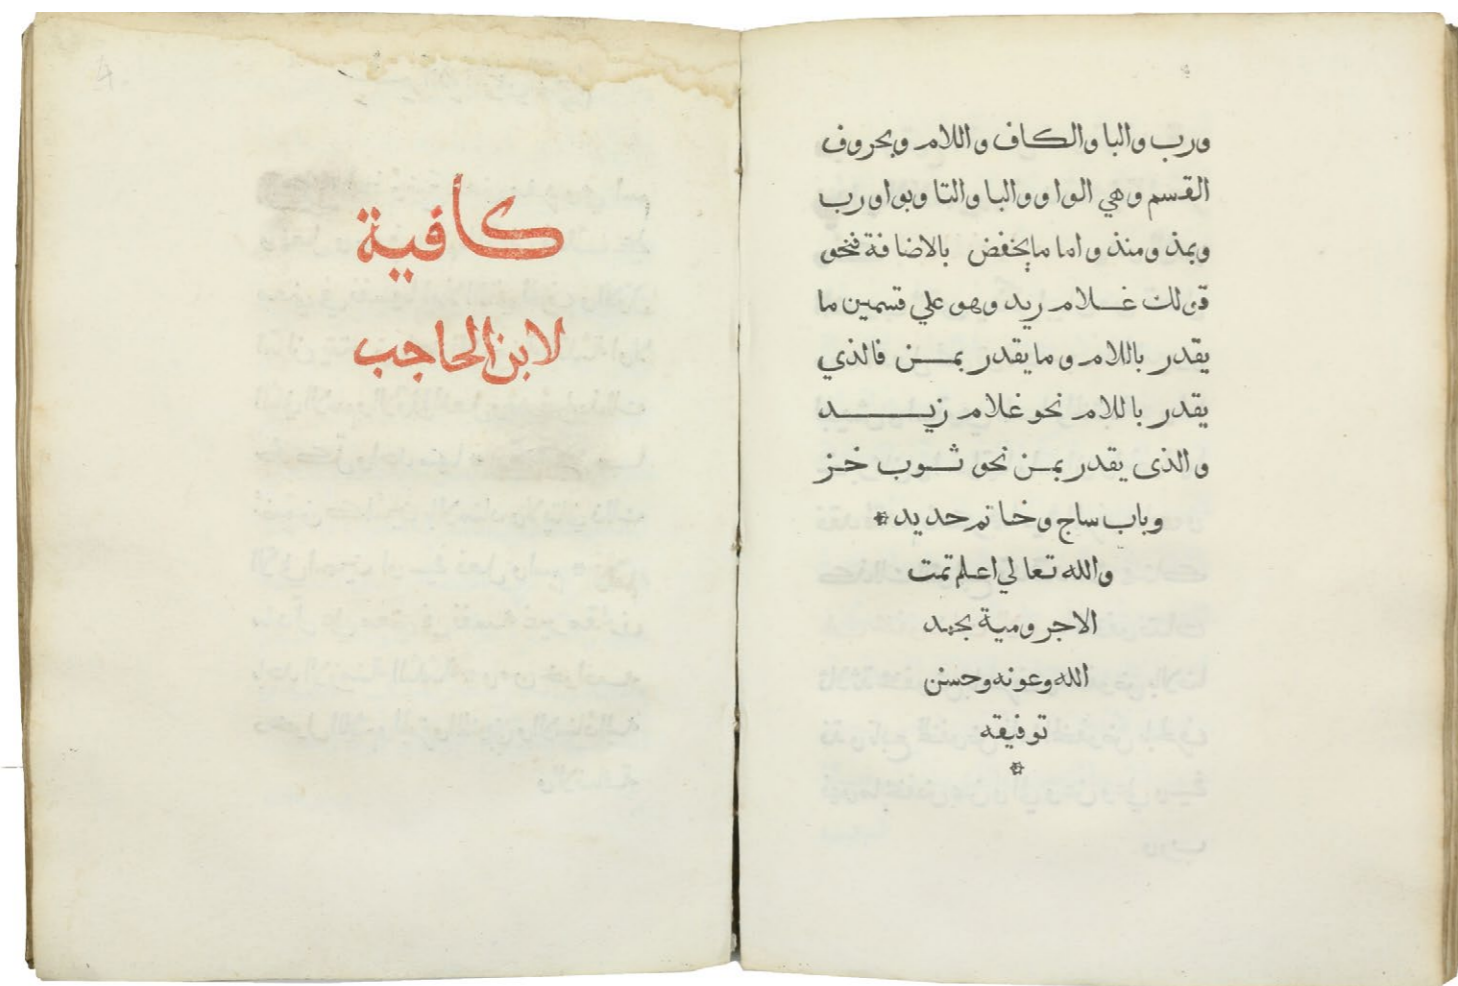 ورب والبا والكاف واللام وبحروف
القسم وهي الواو والبا والتا وبواو رب
وبمذ ومنذ واما ما يخفض بالاضافة فنحو
قولك غلام زيد وهو علي قسمين ما
يقدر باللام وما يقدر بمن فالذي
يقدر باللام نحو غلام زيد
والذى يقدر بمن نحو ثوب خز
وباب ساج وخاتم حديد *
والله تعالي اعلم تمت
الاجرومية بحمد
الله وعونه وحسن
توفيقه
*
كافية
لابن الحاجب